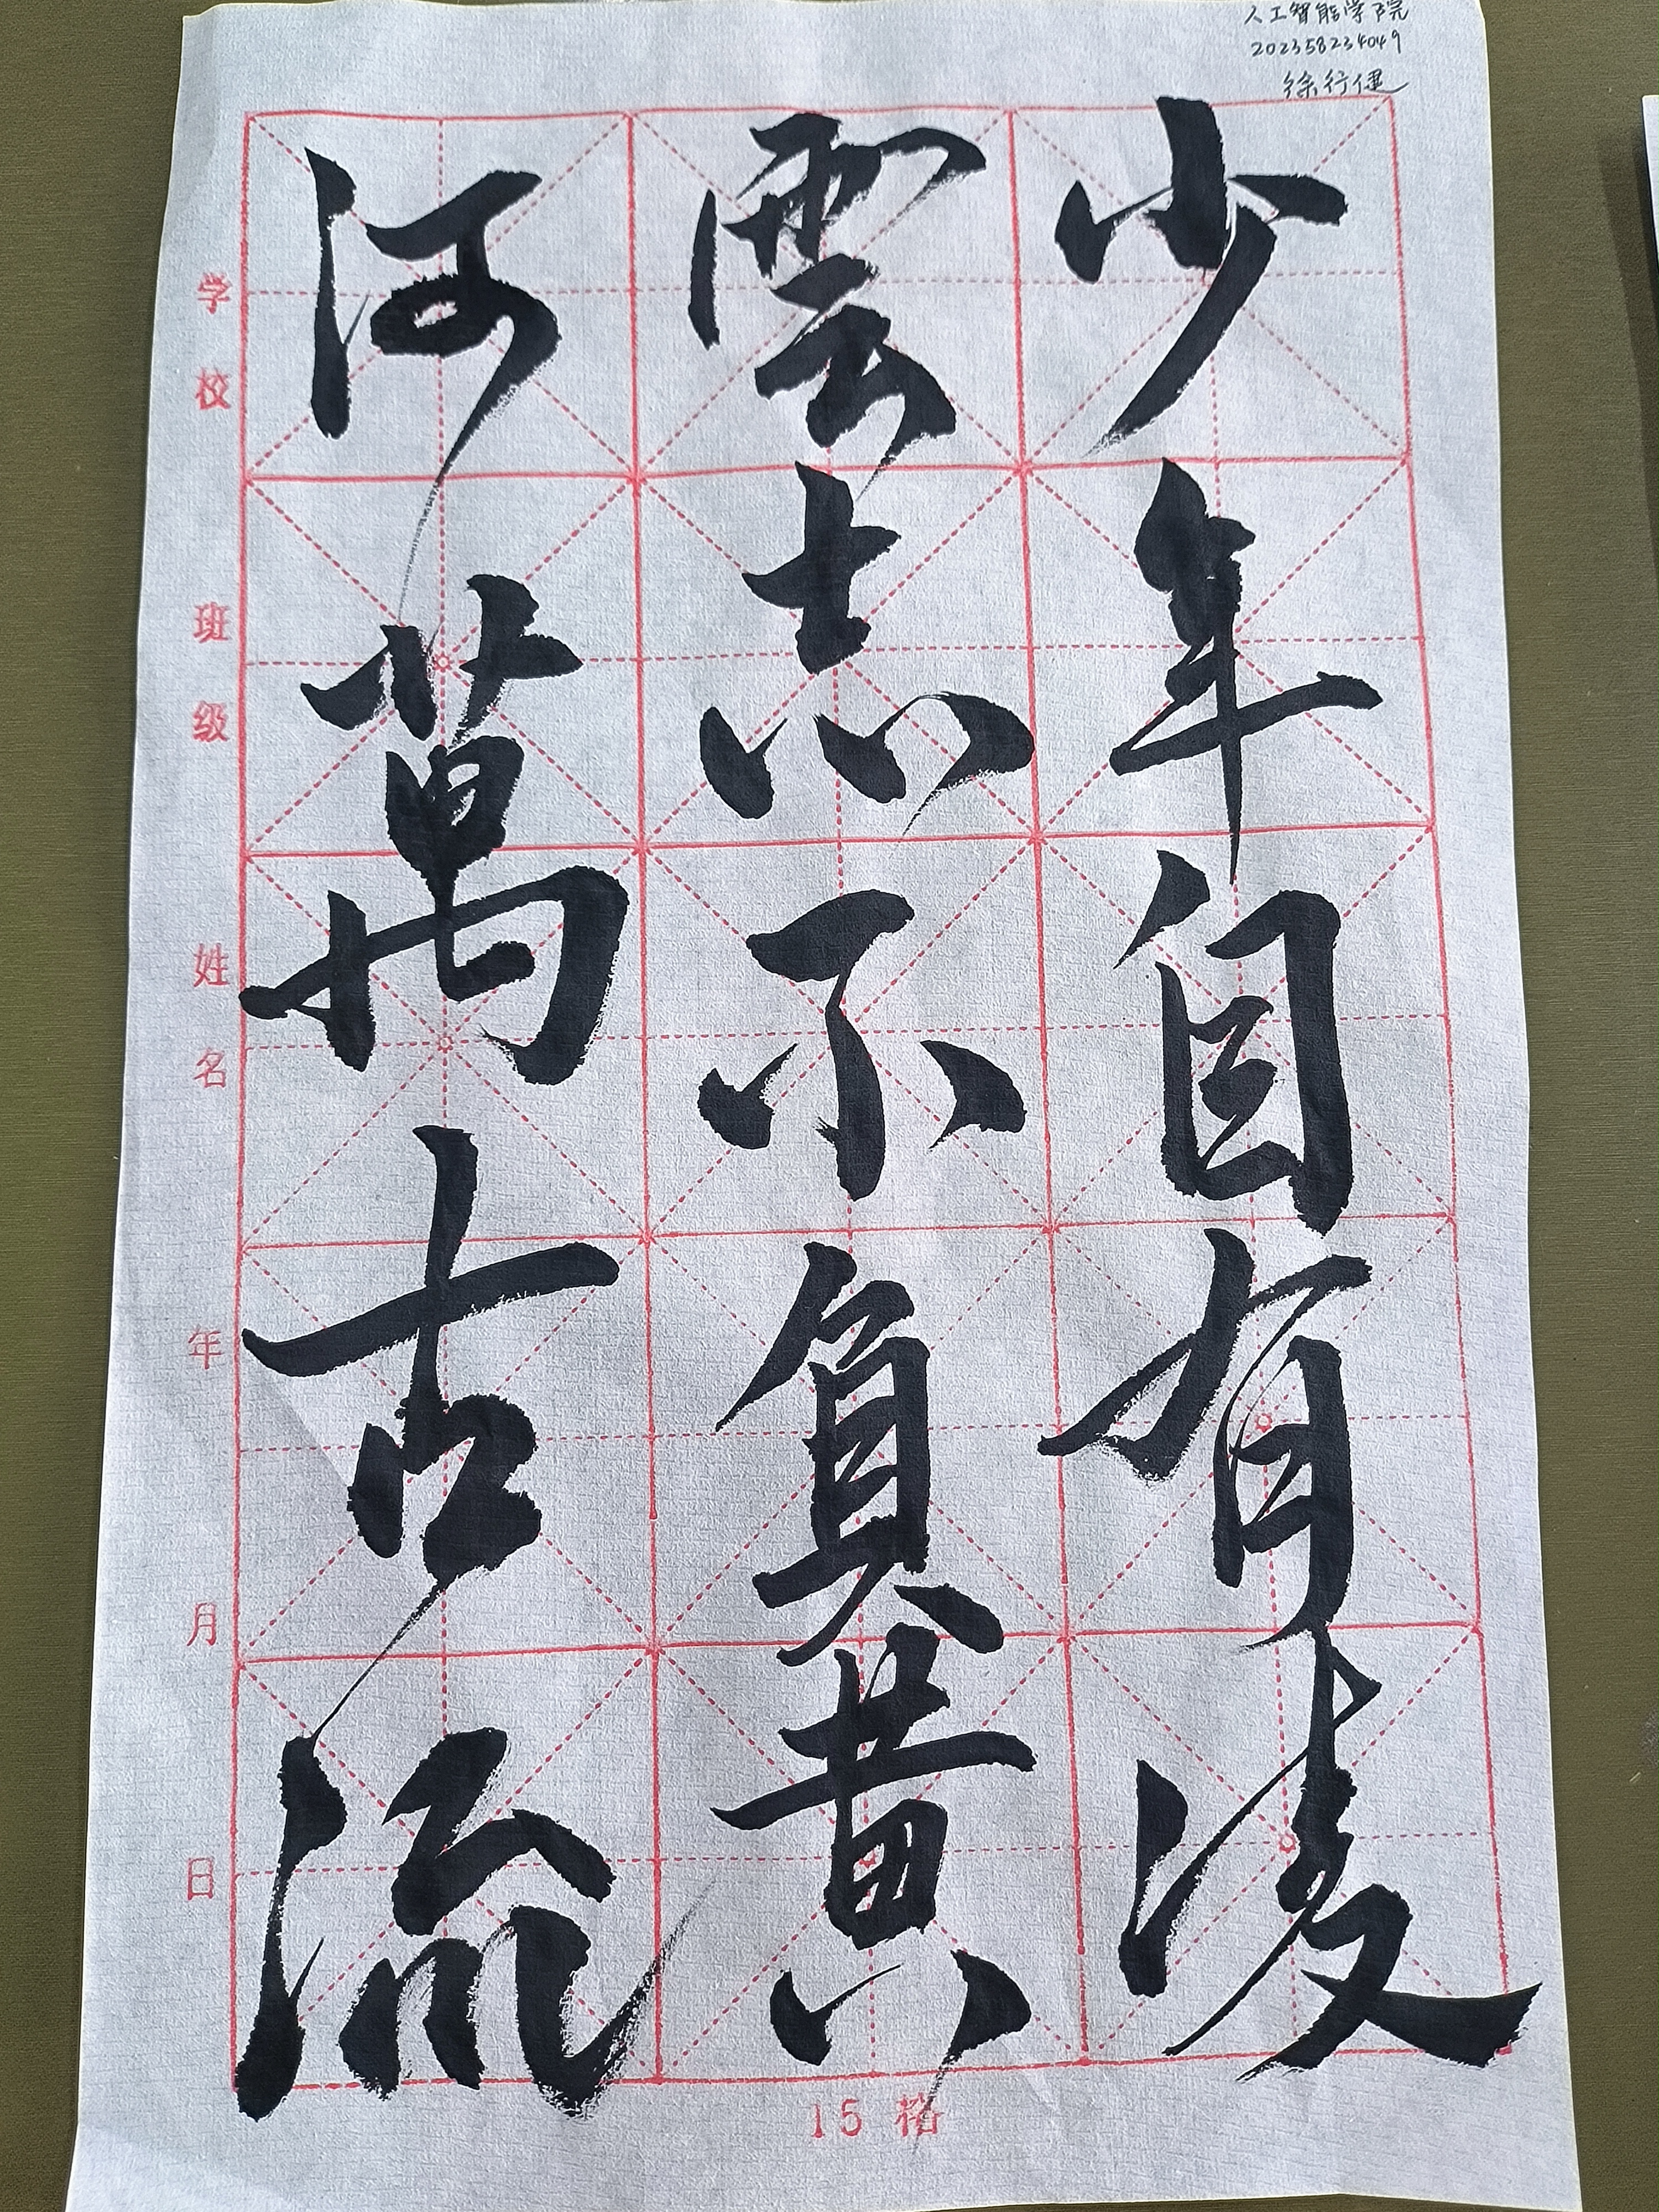 人工智能学院
202358234049
徐行健
少年自有凌
雲志不負黄
河萬古流
学校
班级
姓名
年
月
日
15格